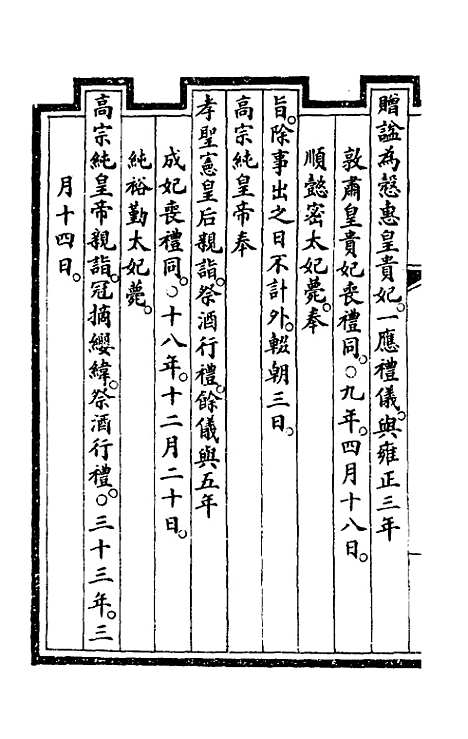 贈諡為愨惠皇貴妃。一應禮儀。與雍正三年
敦肅皇貴妃喪禮同。○九年。四月十八日。
順懿密太妃薨。奉
旨。除事出之日不計外。輟朝三日。
高宗純皇帝奉
孝聖憲皇后親詣。祭酒行禮。餘儀與五年
成妃喪禮同。○十八年。十二月二十日。
純裕勤太妃薨。
高宗純皇帝親詣。冠摘纓緯。祭酒行禮。○三十三年。三
月十四日。